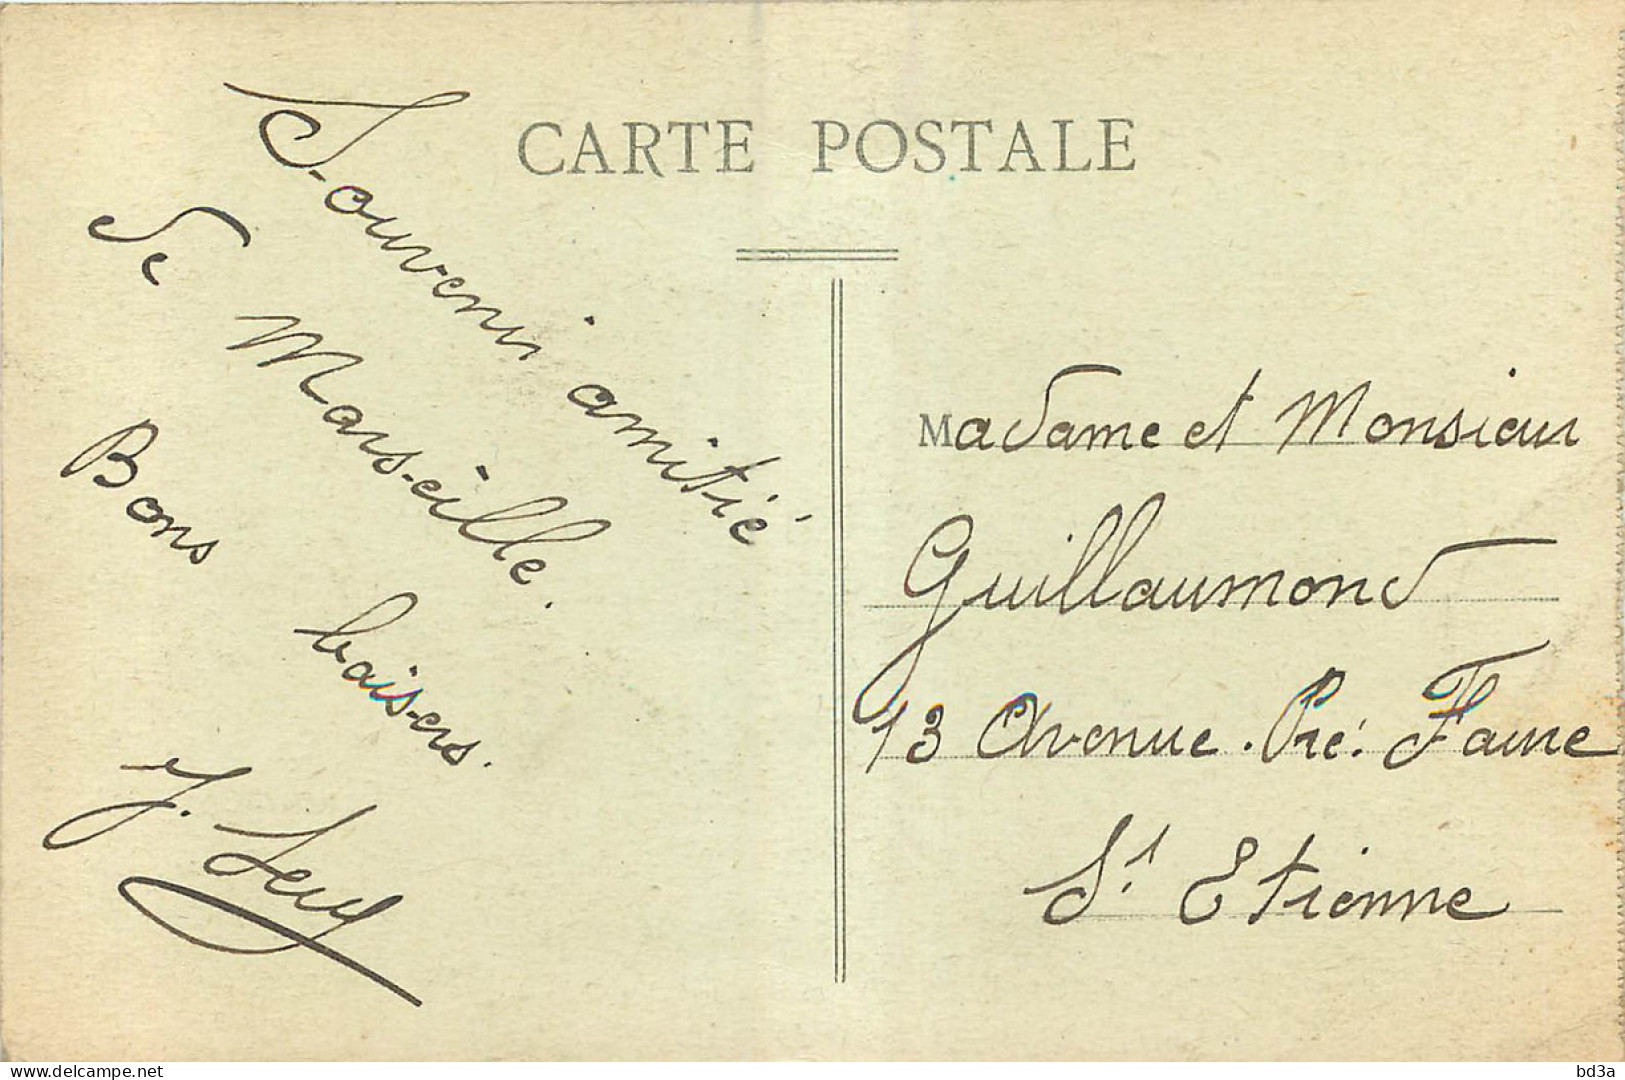 CARTE POSTALE
Souvenir amitié
de Marseille.
Bons baisers.
J.
Madame et Monsieur
Guillaumond
13 Avenue. Pré. Faure
St Etienne
www.delcampe.net
bd3a